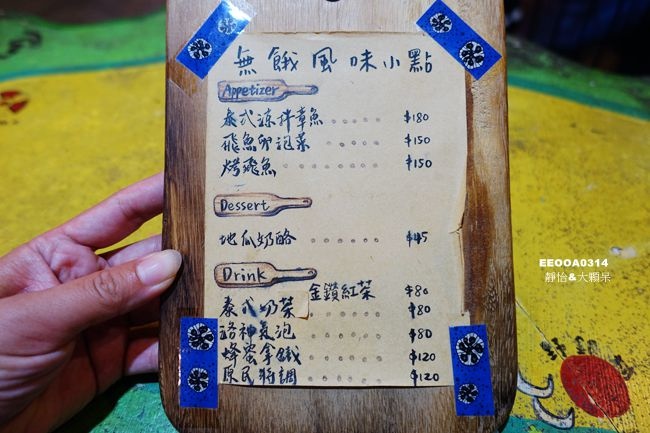 無餓風味小點
Appetizer
泰式涼拌章魚 $180
飛魚卵泡菜 $150
烤飛魚 $150
Dessert
地瓜奶酪 $45
Drink
金鑽紅茶 $80
泰式奶茶 $80
洛神氣泡 $80
蜂蜜拿鐵 $120
原民特調 $120
EEOOA0314
靜怡&大顆呆